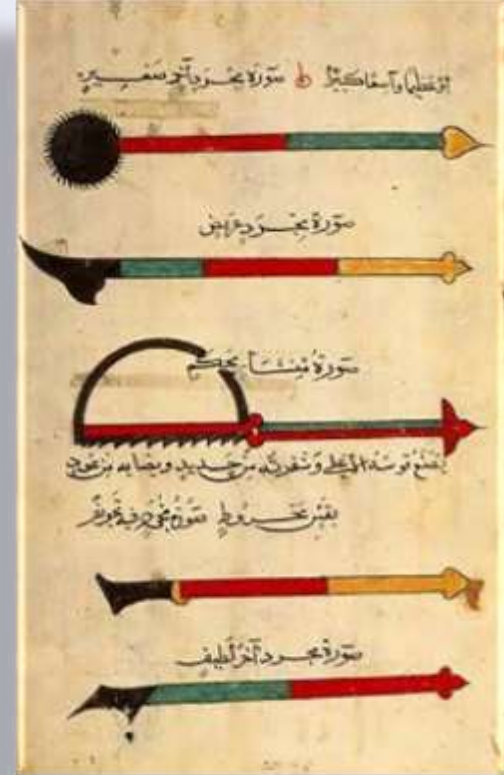 صورة مجرد آخر صغير
صورة مجرد عريض
صورة منشار محكم
يصنع قوسه الاعلى وشفرته من حديد ونصابه من عود
بقس مخروط صورة مجرد فيه تجويف
صورة مجرد آخر لطيف